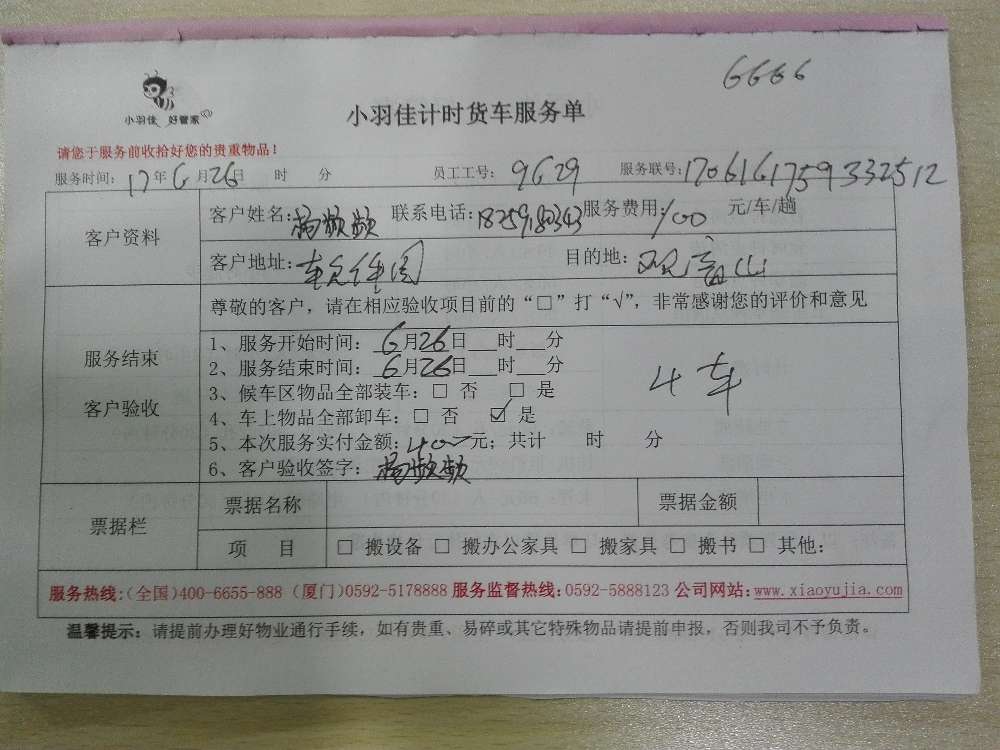 6666
小羽佳 好管家
小羽佳计时货车服务单
请您于服务前收拾好您的贵重物品！
服务时间：17年6月26日 时 分 员工工号：9629 服务联号：1706161759332512
客户资料
客户姓名：杨频频 联系电话：18259180343 服务费用：100 元/车/趟
客户地址：软件园 目的地：观音山
尊敬的客户，请在相应验收项目前的“□”打“√”，非常感谢您的评价和意见
服务结束
客户验收
1、服务开始时间：6月26日___时___分
2、服务结束时间：6月26日___时___分
3、候车区物品全部装车：□ 否 □ 是
4、车上物品全部卸车：□ 否 ☑ 是
4车
5、本次服务实付金额：400元；共计 时 分
6、客户验收签字：杨频频
票据栏
票据名称 票据金额
项 目 □ 搬设备 □ 搬办公家具 □ 搬家具 □ 搬书 □ 其他：
服务热线：(全国)400-6655-888 (厦门)0592-5178888 服务监督热线：0592-5888123 公司网站：www.xiaoyujia.com
温馨提示：请提前办理好物业通行手续，如有贵重、易碎或其它特殊物品请提前申报，否则我司不予负责。